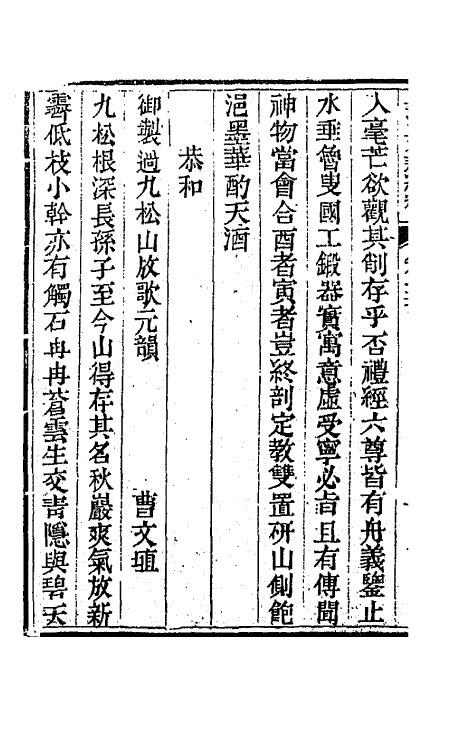 入毫芒欲觀其制存乎否禮經六尊皆有舟義鑒止
水垂魯叟國工鍛器實寓意虛受寧必旨且有傳聞
神物當會合酉者寅者豈終剖定教雙置硏山側飽
浥墨華酌天酒
恭和
御製過九松山放歌元韻 曹文埴
九松根深長孫子至今山得存其名秋巖爽氣放新
霽低枝小幹亦有觸石冉冉蒼雲生交青隱與碧天